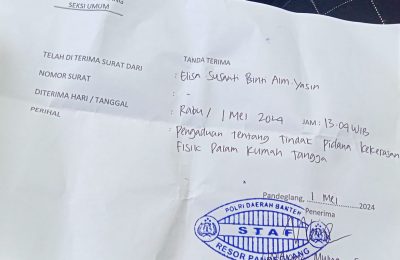 SEKSI UMUM
TANDA TERIMA
TELAH DI TERIMA SURAT DARI : Elisa Susanti Binti Alm. Yasin
NOMOR SURAT : -
DITERIMA HARI / TANGGAL : Rabu / 1 Mei 2024 JAM : 13.04 WIB
PERIHAL : Pengaduan tentang Tindak pidana kekerasan
Fisik Dalam Rumah Tangga
Pandeglang, 1 Mei 2024
Penerima
POLRI DAERAH BANTEN
STAF
RESOR PANDEGLANG